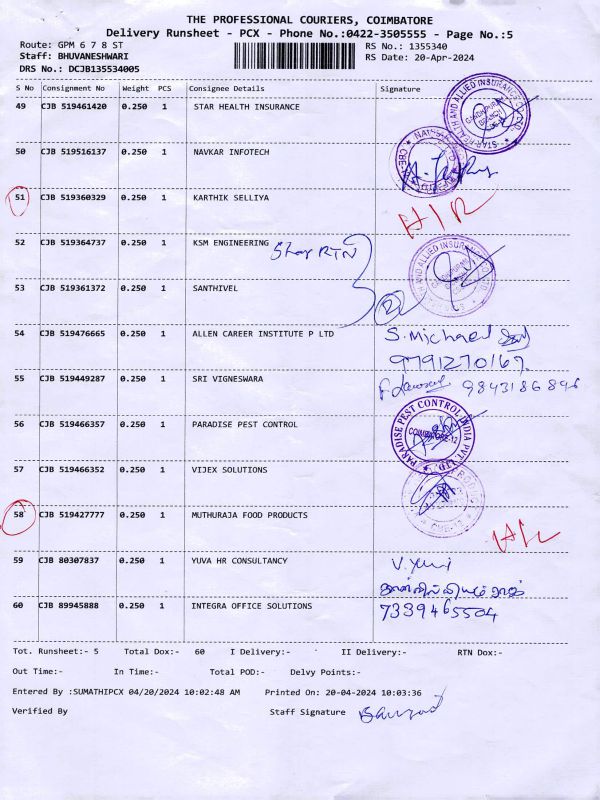 THE PROFESSIONAL COURIERS, COIMBATORE
Delivery Runsheet - PCX - Phone No.:0422-3505555 - Page No.:5
Route: GPM 6 7 8 ST RS No.: 1355340
Staff: BHUVANESHWARI RS Date: 20-Apr-2024
DRS No.: DCJB135534005
S No Consignment No Weight PCS Consignee Details Signature
49 CJB 519461420 0.250 1 STAR HEALTH INSURANCE
50 CJB 519516137 0.250 1 NAVKAR INFOTECH
51 CJB 519360329 0.250 1 KARTHIK SELLIYA
52 CJB 519364737 0.250 1 KSM ENGINEERING
53 CJB 519361372 0.250 1 SANTHIVEL
2
54 CJB 519476665 0.250 1 ALLEN CAREER INSTITUTE P LTD S. Michael
9791270167
55 CJB 519449287 0.250 1 SRI VIGNESWARA 9843186846
56 CJB 519466357 0.250 1 PARADISE PEST CONTROL PARADISE PEST CONTROL INDIA PVT. LTD.
57 CJB 519466352 0.250 1 VIJEX SOLUTIONS
58 CJB 519427777 0.250 1 MUTHURAJA FOOD PRODUCTS
59 CJB 80307837 0.250 1 YUVA HR CONSULTANCY
60 CJB 89945888 0.250 1 INTEGRA OFFICE SOLUTIONS 7339465504
Tot. Runsheet:- 5 Total Dox:- 60 I Delivery:- II Delivery:- RTN Dox:-
Out Time:- In Time:- Total POD:- Delvy Points:-
Entered By :SUMATHIPCX 04/20/2024 10:02:48 AM Printed On: 20-04-2024 10:03:36
Verified By Staff Signature